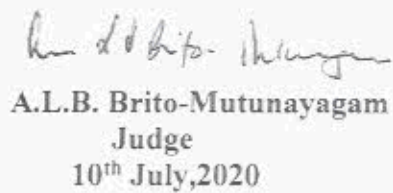 A.L.B. Brito-Mutunayagam
Judge
10th July,2020